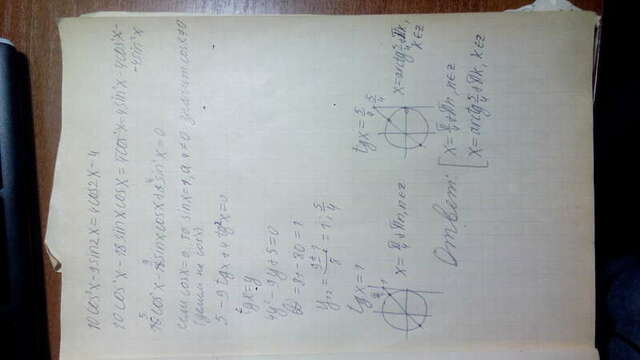 10cos²x-9sin2x=4cos2x-4
10cos²x-18sinxcosx=4cos²x-4sin²x-4cos²x-
-4sin²x
10cos²x-18sinxcosx+8sin²x=0
5 9 4
если cosx=0, то sinx=1, а 4≠0 значит cosx≠0
(делим на cos²x)
5-9tgx+4tg²x=0
tgx=y
4y²-9y+5=0
D=81-80=1
y₁,₂=(9±1)/8=1; 5/4
tgx=1
x=π/4+πn, n∈z
tgx=5/4
x=arctg5/4+πk,
k∈z
Ответ: [x=π/4+πn, n∈z
x=arctg5/4+πk, k∈z